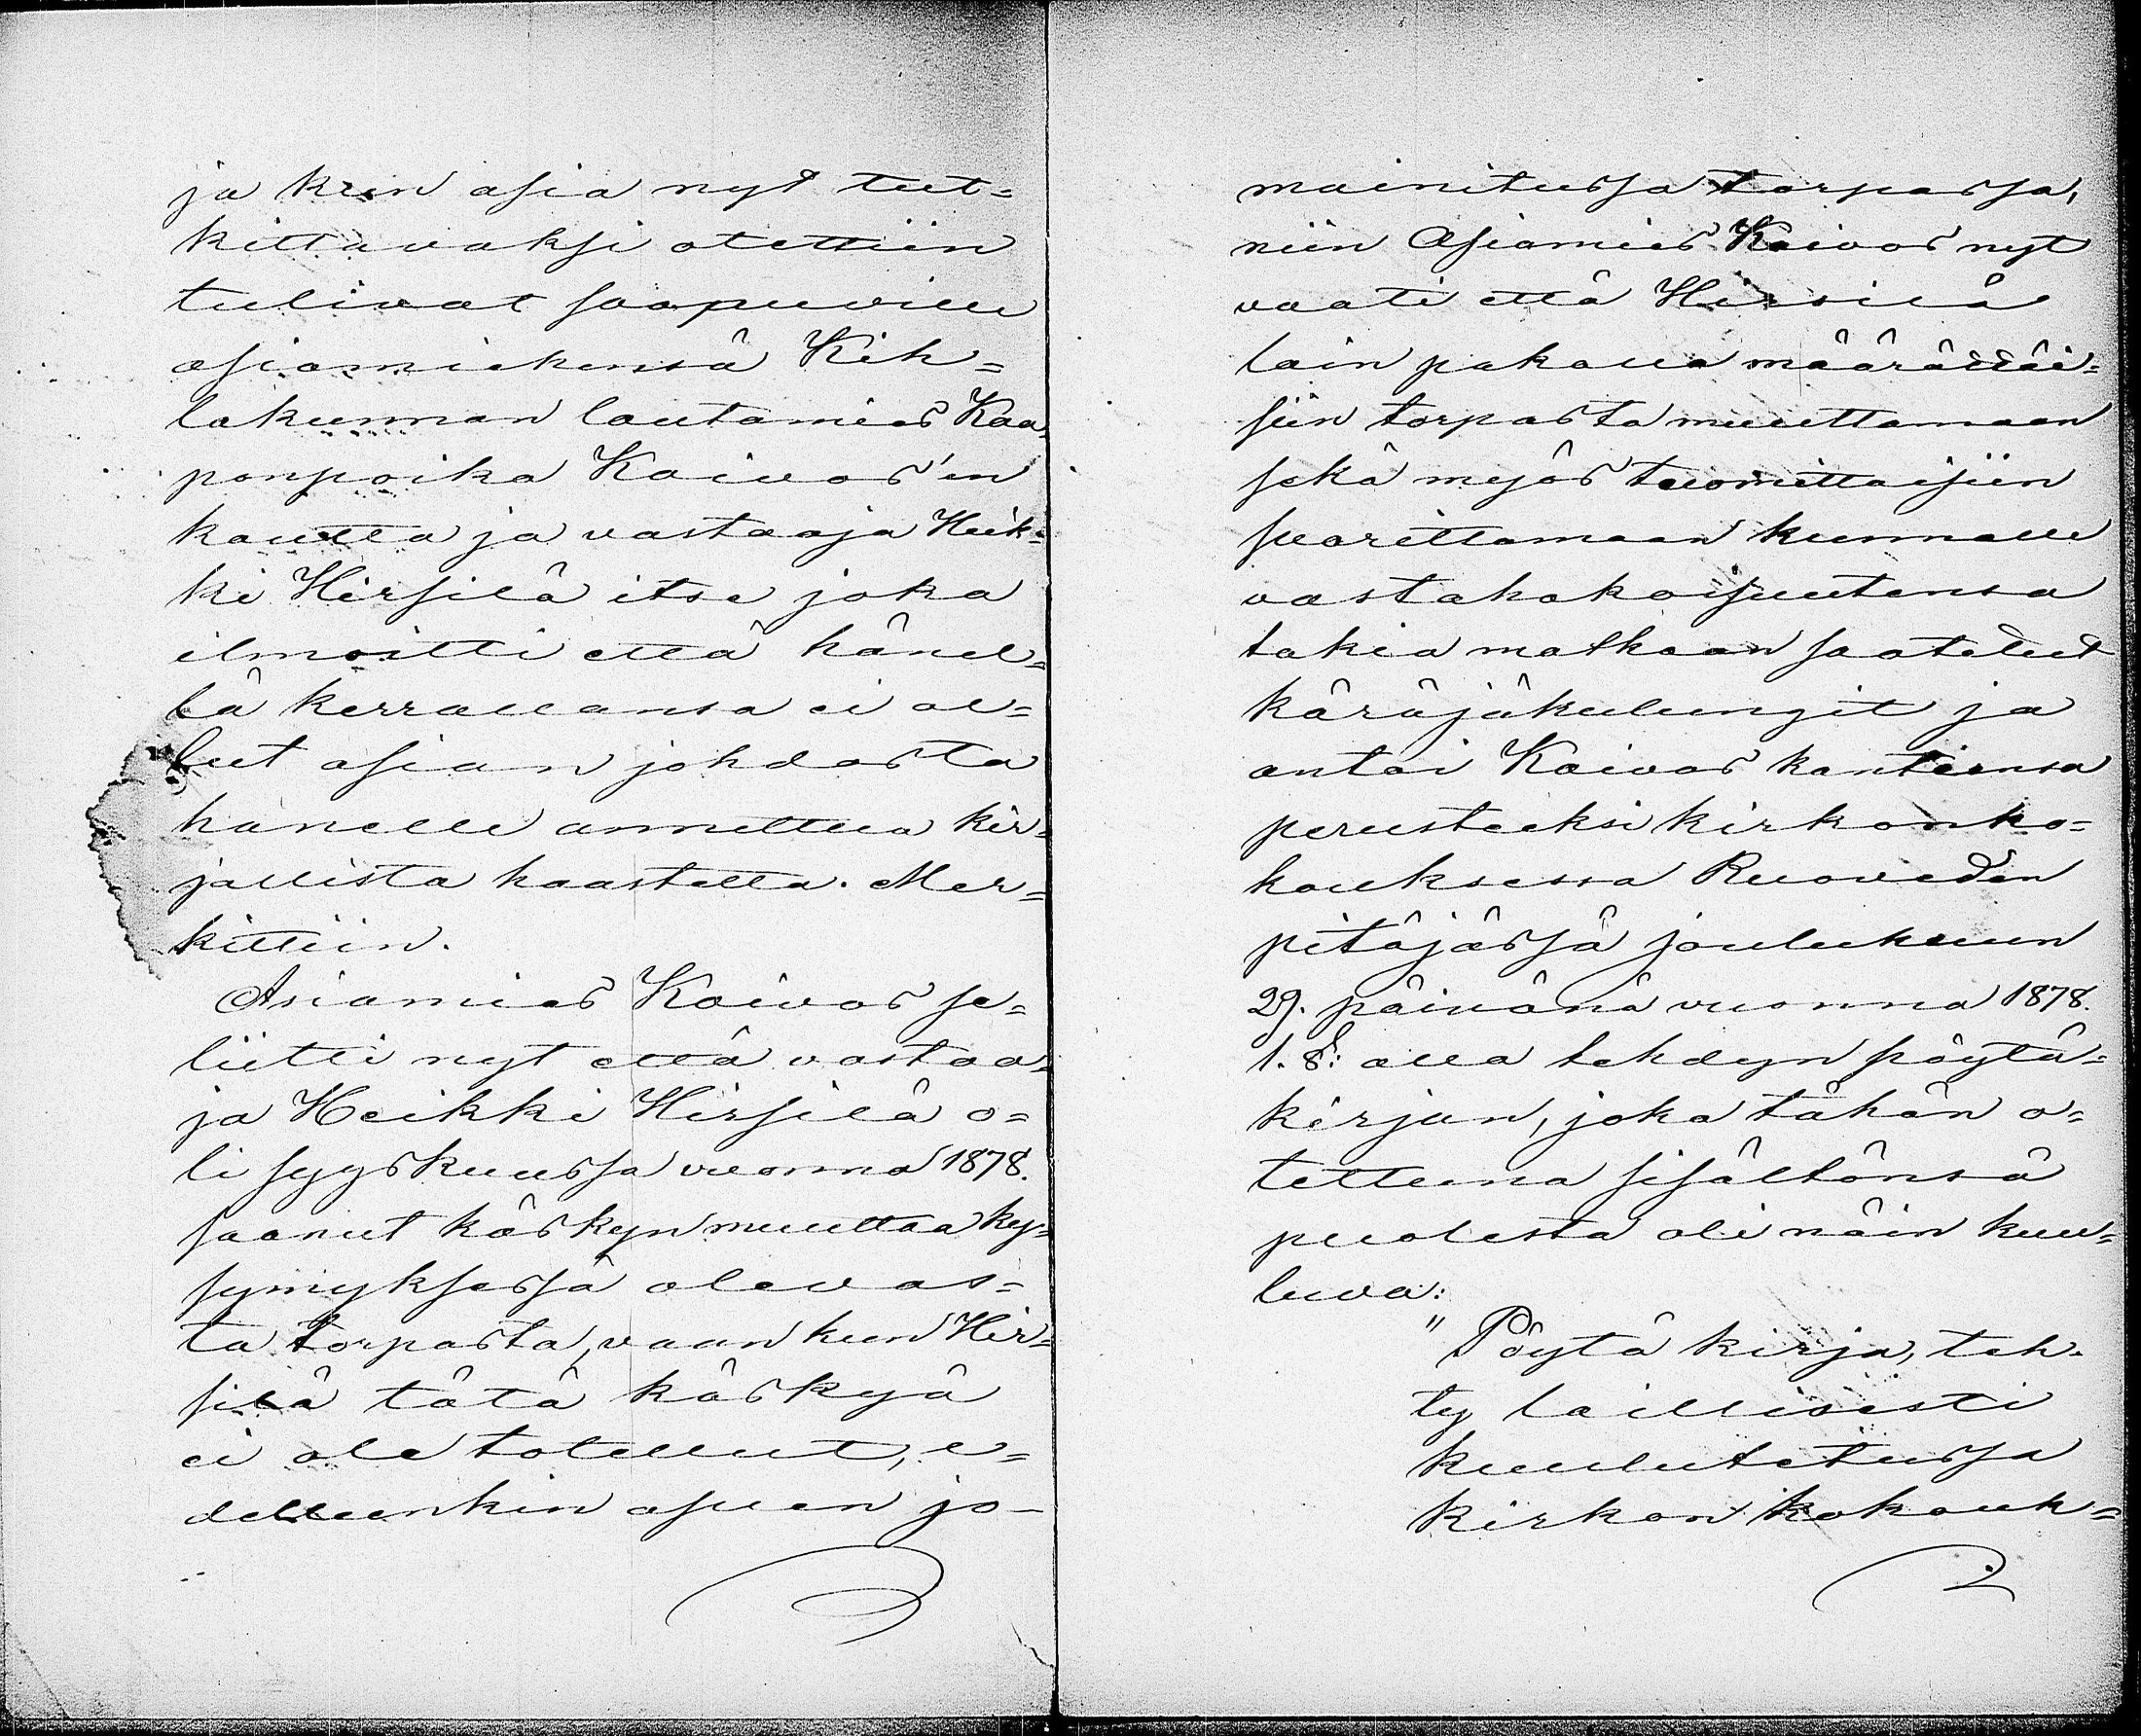 ja kun asia nyt tut=
kittavaksi otettiin
tulivat saapuville
asiamiehensä Kih=
lakunnan lautamies Kaa=
ponpoika Koivos'en
kautta ja vastaaja Heik=
ki Hirsilä itse joka
ilmoitti että hänel=
lä kerrallansa ei ol=
lut asian johdosta
hänelle annettua kir=
jallista haastetta. Mer=
kittiin.
Asiamies Koivos se=
liitti nyt että vastaa=
ja Heikki Hirsilä o=
li syyskuussa vuonna 1878.
saanut käskyn muuttaa ky=
symyksessä olevas=
ta torpasta, vaan kun Hir=
silä tätä käskyä
ei ole totellut, e=
delleenkin asuen jo-
mainitussa torpassa,
niin Asiamies Koivos nyt
vaati että Hirsilä
lain pakolla määrättäi=
siin torpasta muuttamaan
sekä myös tuomittaisiin
suorittamaan kunnalle
vastahakoisuutensa
takia matkaan saatetut
käräjäkulungit ja
antoi Koivos kanteensa
perusteeksi kirkonko=
kouksessa Ruoveden
pitäjässä joulukuun
29. päivänä vuonna 1878.
1. §: alla tehdyn pöytä=
kirjan, joka tähän o=
tettuna sisältönsä
puolesta oli näin kuu=
luva:
" Pöytäkirja, teh=
ty laillisesti
kuulutetussa
kirkon kokouk=